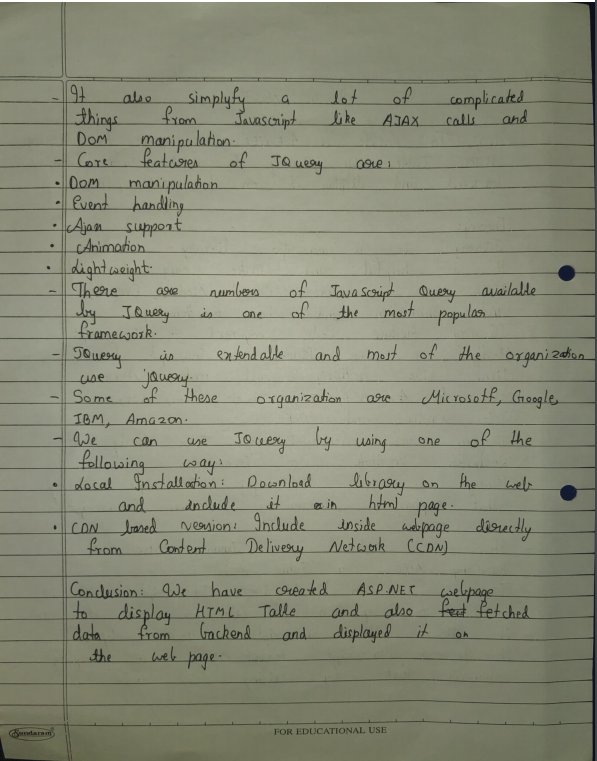 - It also simplyfy a lot of complicated
things from Javascript like AJAX calls and
DOM manipulation.
- Core features of JQuery are:
• DOM manipulation
• Event handling
• Ajax support
• Animation
• Lightweight.
- There are numbers of JavaScript Query available
by JQuery is one of the most popular
framework.
- JQuery is extendable and most of the organization
use jquery.
- Some of these organization are Microsoft, Google,
IBM, Amazon.
- We can use JQuery by using one of the
following way:
• Local Installation: Download library on the web
and include it in html page.
• CDN based version: Include inside webpage directly
from Content Delivery Network (CDN)
Conclusion: We have created ASP.NET webpage
to display HTML Table and also fetched
data from backend and displayed it on
the web page.
Sundaram
FOR EDUCATIONAL USE